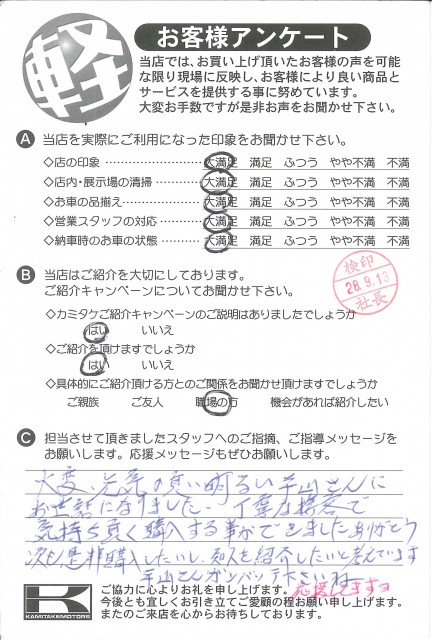 軽
お客様アンケート
当店では、お買い上げ頂いたお客様の声を可能
な限り現場に反映し、お客様により良い商品と
サービスを提供する事に努めています。
大変お手数ですが是非お声をお聞かせ下さい。
A 当店を実際にご利用になった印象をお聞かせ下さい。
◇店の印象 ………………… 大満足 満足 ふつう やや不満 不満
◇店内・展示場の清掃………… 大満足 満足 ふつう やや不満 不満
◇お車の品揃え……………… 大満足 満足 ふつう やや不満 不満
◇営業スタッフの対応 ……… 大満足 満足 ふつう やや不満 不満
◇納車時のお車の状態 ……… 大満足 満足 ふつう やや不満 不満
B 当店はご紹介を大切にしております。
ご紹介キャンペーンについてお聞かせ下さい。
検印
28.9.13
社長
◇カミタケご紹介キャンペーンのご説明はありましたでしょうか
はい いいえ
◇ご紹介を頂けますでしょうか
はい いいえ
◇具体的にご紹介頂ける方とのご関係をお聞かせ頂けますでしょうか
ご親族 ご友人 職場の方 機会があれば紹介したい
C 担当させて頂きましたスタッフへのご指摘、ご指導メッセージを
お願いします。応援メッセージもぜひお願いします。
大変、元気の良い明るい平山さんに
お世話になりました。丁寧な接客で
気持ち良く購入する事ができましたありがとう
次も是非購入したいし、知人を紹介したいと考えています
平山さんガンバッテ下さいね
応援してますヨ
K
KAMITAKEMOTORS
ご協力に心よりお礼を申し上げます。
今後とも宜しくお引き立てご愛顧の程お願い申し上げます。
またのご来店を心からお待ちしております。